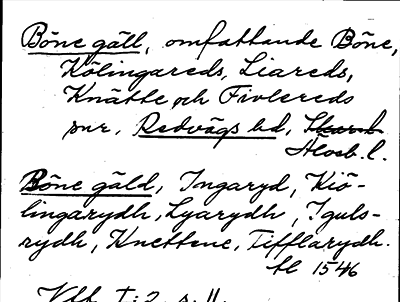 Böne gäll, omfattande Böne,
Kölingareds, Liareds,
Knätte och Fivlereds
snr, Redvägs hd, Skarab
Älvsb. l.
Böne gäld, Ingaryd, Kiö-
lingarydh, Lyarydh, Iguls-
rydh, Knettene, Tifflarydh.
tl 1546
Vff I:2 s. 11.